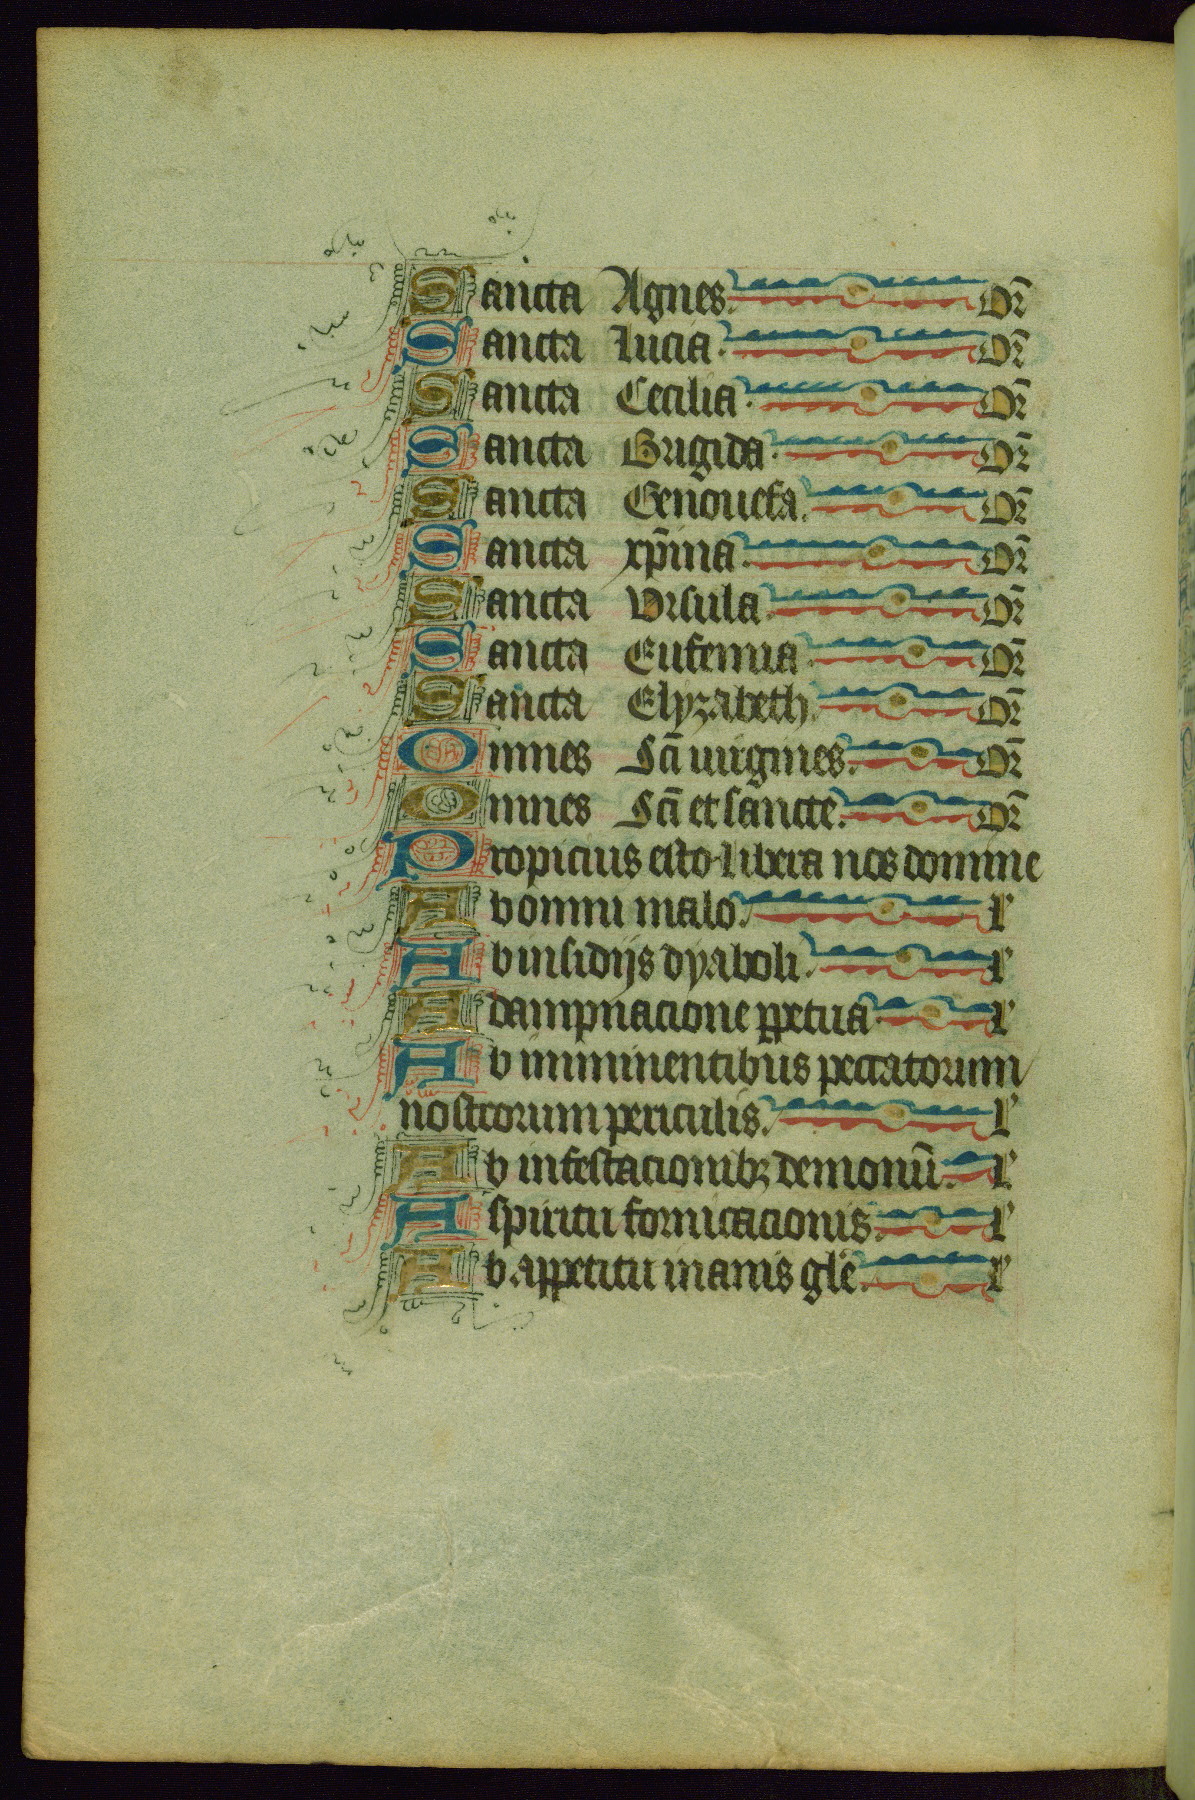 Sancta Agnes. Or̄
Sancta Lucia. Or̄
Sancta Cecilia. Or̄
Sancta Brigida. Or̄
Sancta Genouefa. Or̄
Sancta xp̄ina. Or̄
Sancta Vrsula. Or̄
Sancta Eufemia. Or̄
Sancta Elyzabeth. Or̄
Omnes Sc̄i uirgines. Or̄
Omnes Sc̄i et sancte. Or̄
Propicius esto libera nos domine
Ab omni malo. L
Ab insidijs dyaboli. L
A dampnacione ꝑpetua. L
Ab imminentibus peccatorum
nostrorum periculis. L
Ab infestacionibꝫ demonū. L
A spiritu fornicacionis. L
Ab appetitu inanis gl̄e. L